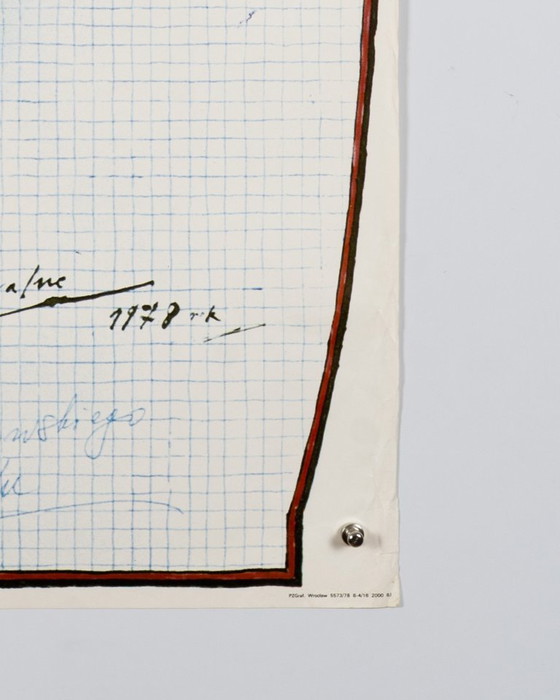 alne
1978 rok
wskiego
PZGraf. Wrocław 5573/78 E-4/18 2000 A1